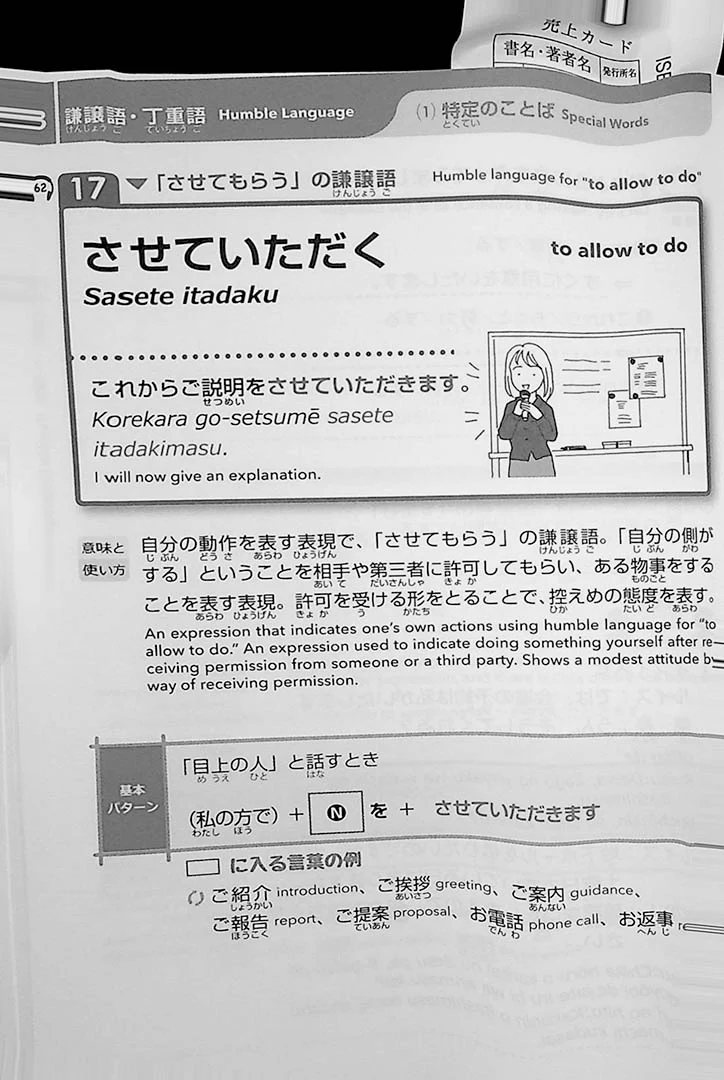 売上カード
書名・著者名
発行所名
謙譲語・丁重語 Humble Language
けんじょう ご ていちょう ご
(1) 特定のことば Special Words
とくてい
62
17 ▼「させてもらう」の謙譲語 Humble language for "to allow to do"
けんじょう ご
させていただく to allow to do
Sasete itadaku
これからご説明をさせていただきます。
せつめい
Korekara go-setsumē sasete
itadakimasu.
I will now give an explanation.
意味と
使い方
自分の動作を表す表現で、「させてもらう」の謙譲語。「自分の側が
じ ぶん どう さ あらわ ひょうげん けんじょう ご じ ぶん がわ
する」ということを相手や第三者に許可してもらい、ある物事をする
あい て だいさんしゃ きょ か ものごと
ことを表す表現。許可を受ける形をとることで、控えめの態度を表す。
あらわ ひょうげん きょ か う かたち ひか たい ど あらわ
An expression that indicates one's own actions using humble language for "to
allow to do." An expression used to indicate doing something yourself after re-
ceiving permission from someone or a third party. Shows a modest attitude by
way of receiving permission.
基本
パターン
「目上の人」と話すとき
め うえ ひと はな
(私の方で) + N を + させていただきます
わたし ほう
に入る言葉の例
ご紹介 introduction、ご挨拶 greeting、ご案内 guidance、
しょうかい あいさつ あんない
ご報告 report、ご提案 proposal、お電話 phone call、お返事
ほうこく ていあん でん わ へん じ